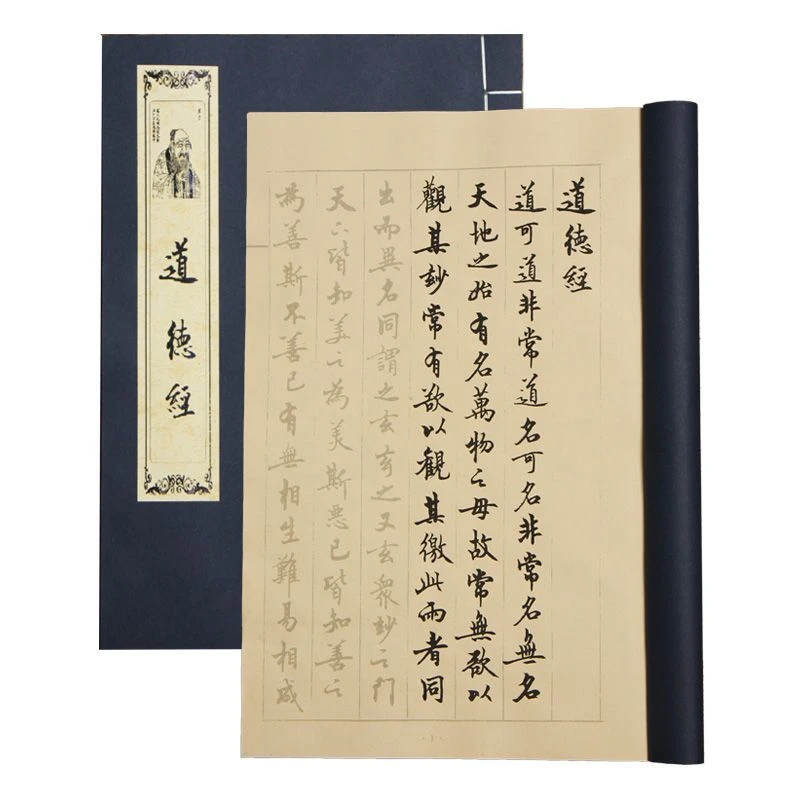 道德經
道德經
道可道非常道名可名非常名無名
天地之始有名萬物之母故常無欲以
觀其妙常有欲以觀其徼此兩者同
出而異名同謂之玄玄之又玄衆妙之門
天下皆知美之為美斯悪已皆知善之
為善斯不善已有無相生難易相成